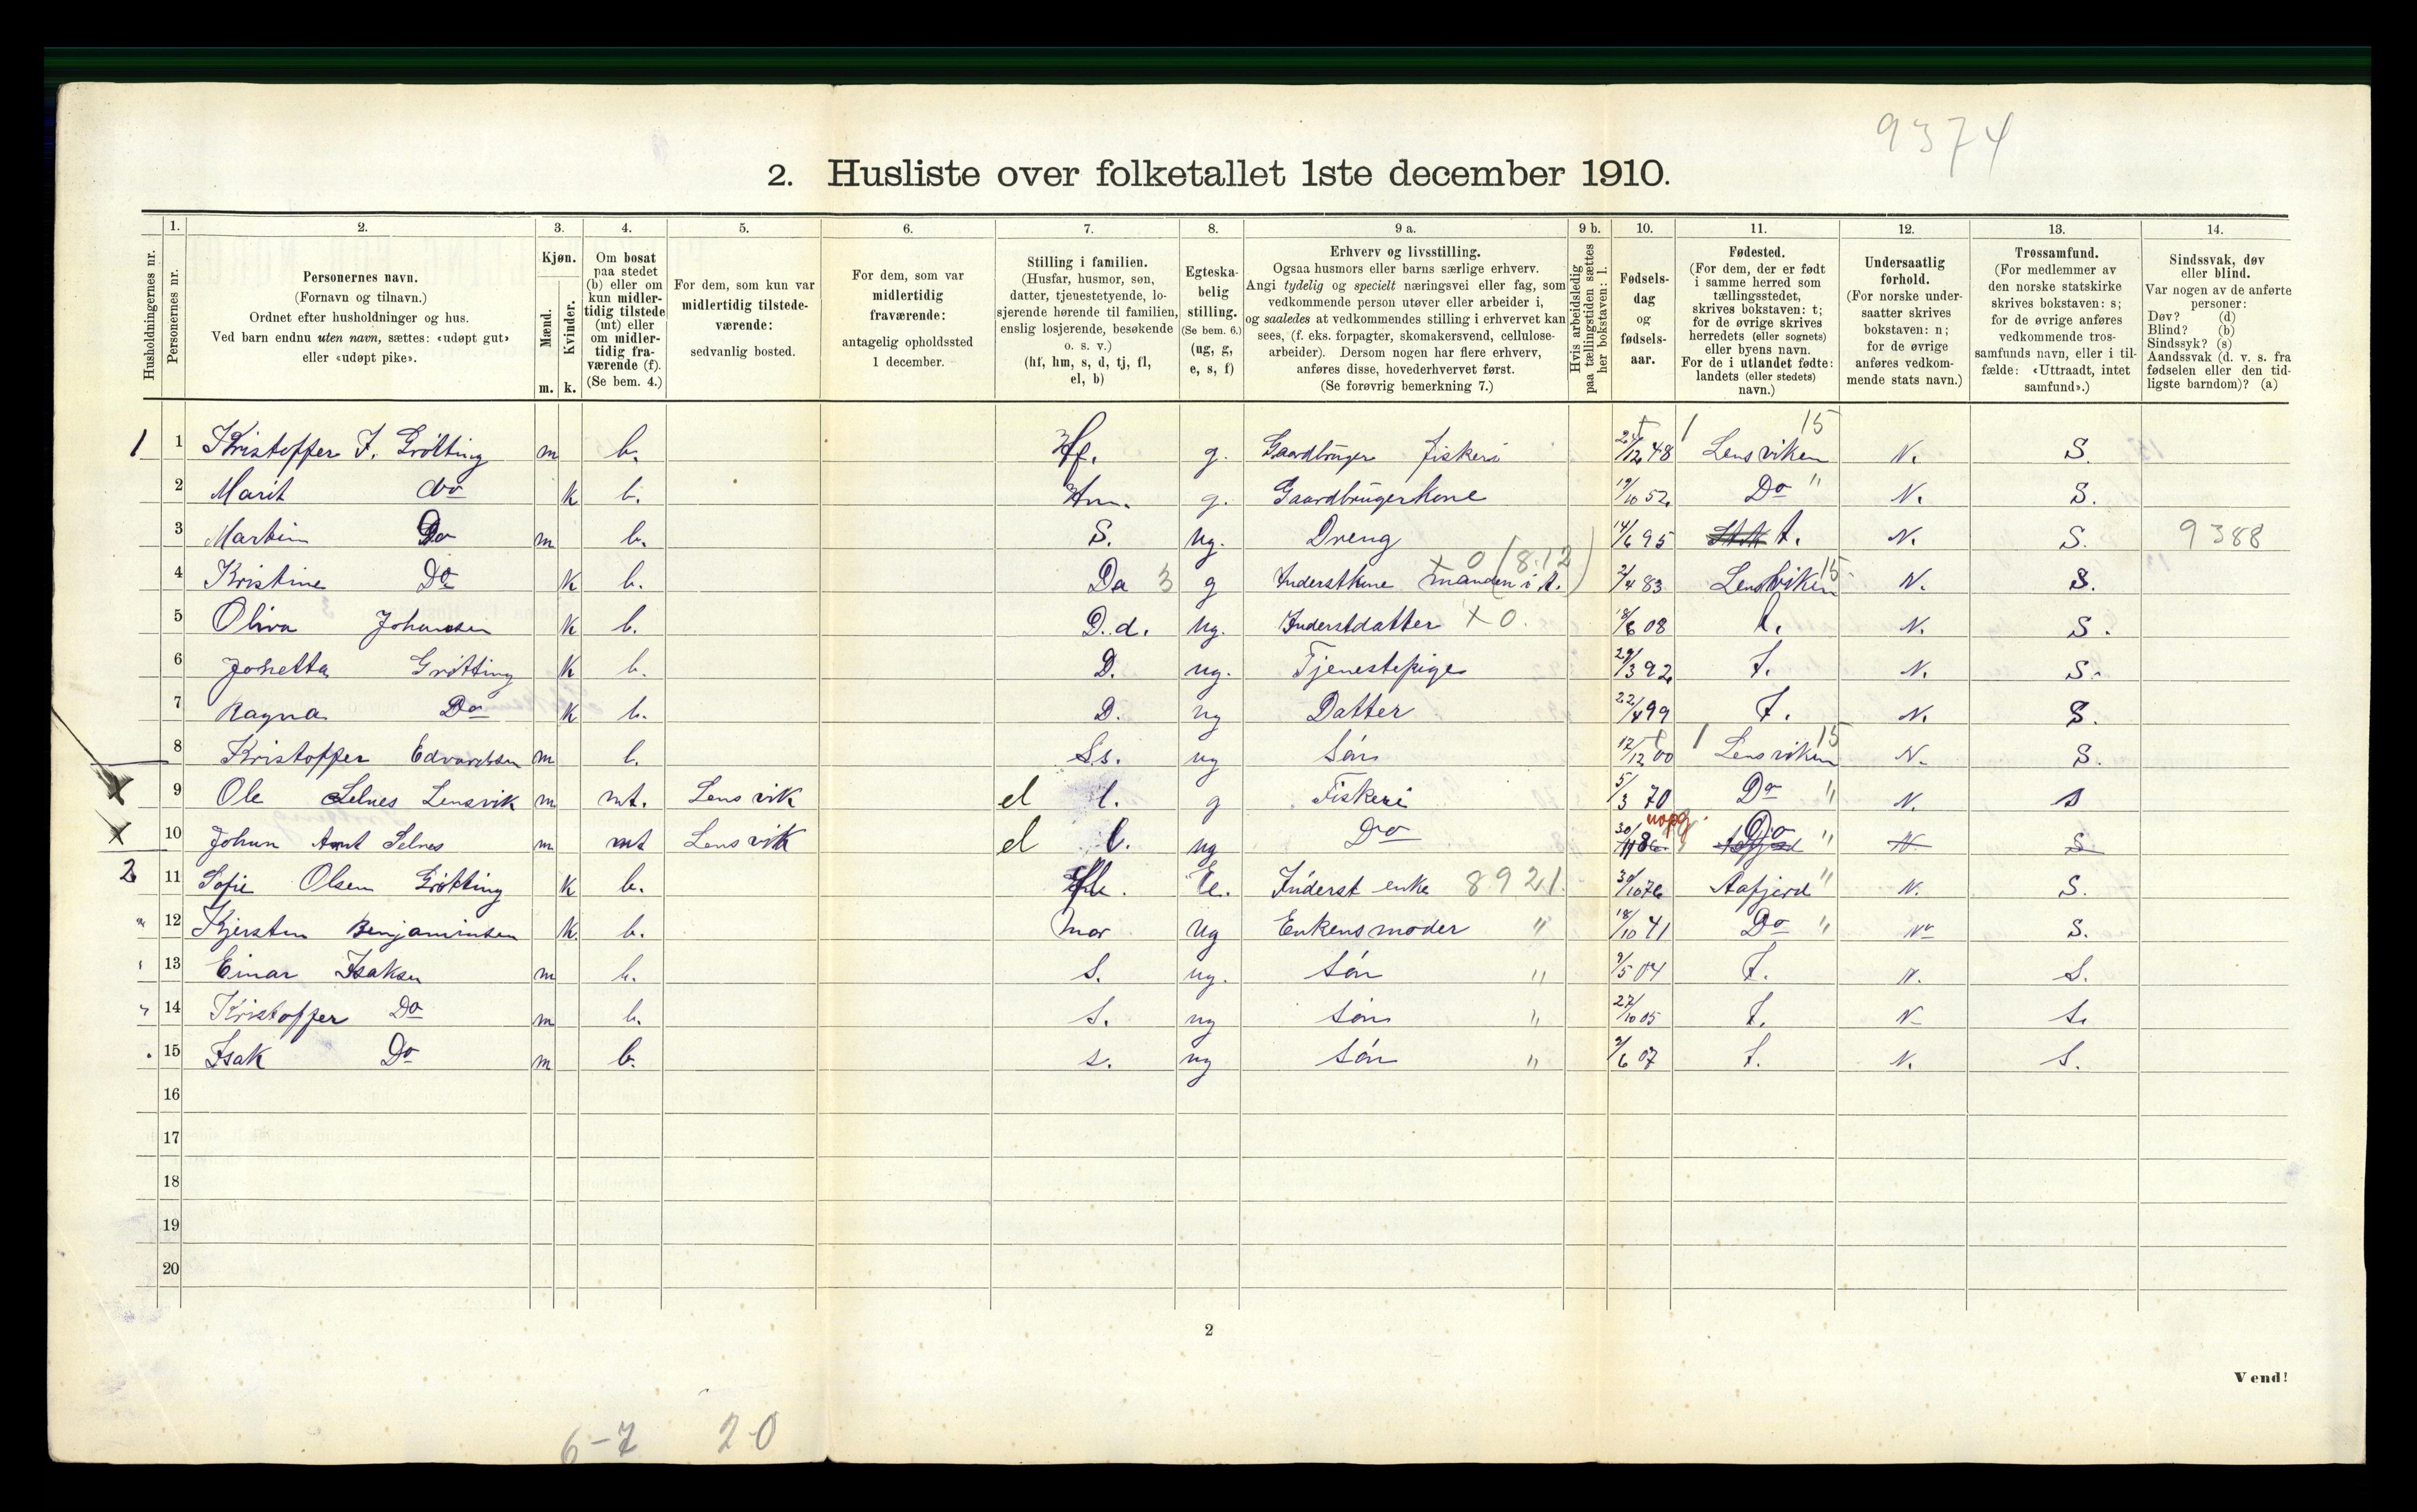 9374
2. Husliste over folketallet 1ste december 1910.
Husholdningernes nr.
1. Personernes nr.
2. Personernes navn. (Fornavn og tilnavn.) Ordnet efter husholdninger og hus. Ved barn endnu uten navn, sættes: «udøpt gut» eller «udøpt pike».
3. Kjøn. Mænd. m. Kvinder. k.
4. Om bosat paa stedet (b) eller om kun midlertidig tilstede (mt) eller om midlertidig fraværende (f). (Se bem. 4.)
5. For dem, som kun var midlertidig tilstedeværende: sedvanlig bosted.
6. For dem, som var midlertidig fraværende: antagelig opholdssted 1 december.
7. Stilling i familien. (Husfar, husmor, søn, datter, tjenestetyende, losjerende hørende til familien, enslig losjerende, besøkende o. s. v.) (hf, hm, s, d, tj, fl, el, b)
8. Egteskabelig stilling. (Se bem. 6.) (ug, g, e, s, f)
9 a. Erhverv og livsstilling. Ogsaa husmors eller barns særlige erhverv. Angi tydelig og specielt næringsvei eller fag, som vedkommende person utøver eller arbeider i, og saaledes at vedkommendes stilling i erhvervet kan sees, (f. eks. forpagter, skomakersvend, cellulosearbeider). Dersom nogen har flere erhverv, anføres disse, hovederhvervet først. (Se forøvrig bemerkning 7.)
9 b. Hvis arbeidsledig paa tællingstiden sættes her bokstaven: l.
10. Fødselsdag og fødselsaar.
11. Fødested. (For dem, der er født i samme herred som tællingsstedet, skrives bokstaven: t; for de øvrige skrives herredets (eller sognets) eller byens navn. For de i utlandet fødte: landets (eller stedets) navn.)
12. Undersaatlig forhold. (For norske undersaatter skrives bokstaven: n; for de øvrige anføres vedkommende stats navn.)
13. Trossamfund. (For medlemmer av den norske statskirke skrives bokstaven: s; for de øvrige anføres vedkommende trossamfunds navn, eller i tilfælde: «Uttraadt, intet samfund».)
14. Sindssvak, døv eller blind. Var nogen av de anførte personer: Døv? (d) Blind? (b) Sindssyk? (s) Aandssvak (d. v. s. fra fødselen eller den tidligste barndom)? (a)
1 1 Kristoffer J. Grötting m b. Hf. g. Gaardbruger fiskeri 24/12 48 Lensviken 15 N. S.
2 Marit do k b. Hm. g. Gaardbrugerkone 19/10 52 Do " N. S.
3 Martin Do m b. S. ug. Dreng 14/6 95 t. N. S. 9388
4 Kristine Do k b. Da 3 g Inderstkone manden i A. 2/4 83 Lensviken 15 N. S.
5 Oliva Johansen k b. D.d. ug. Inderstdatter X 0. 18/8 08 t. N. S.
6 Johetta Grötting k b. D. ug. Tjenestepige 29/3 92 T. N. S.
7 Ragna Do k b. D. ug Datter 22/4 99 T. N. S.
8 Kristoffer Edvardsen m b. Ss. ug Sön 12/12 00 Lensviken 15 N. S.
X 9 Ole Selnes Lensvik m mt. Lensvik el l. g Fiskeri 5/3 70 Do " N. S
X 10 Johan Arnt Selnes m mt Lensvik el l. ug Do 30/ uopg. Do " N S
2 11 Sofie Olsen Grötting k b. E. Inderst enke 8921. 30/10 76 Aafjord " N. S.
" 12 Kjersten Benjaminsen k. b. Mor ug Enkens moder " 18/10 41 Do " N S.
13 Einar Isaksen m b. S. ug. Sön " 9/5 04 T. N. S.
" 14 Kristoffer Do m b. S. ug Sön " 27/10 05 T. N S.
15 Isak Do m b. s. ug Sön " 9/6 07 T. N. S.
16
17
18
19
20
2
Vend!
6-7 20